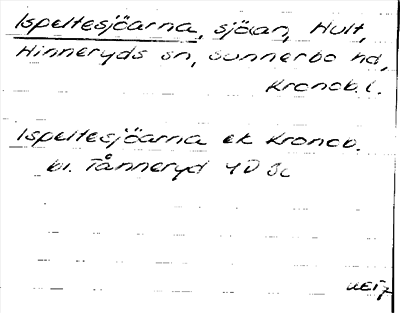 Ispeltesjöarna, sjöar, Hult,
Hinneryds sn, Sunnerbo hd,
Kronob. l.
Ispeltesjöarna ek Kronob.
bl. Tånneryd 4D 3c